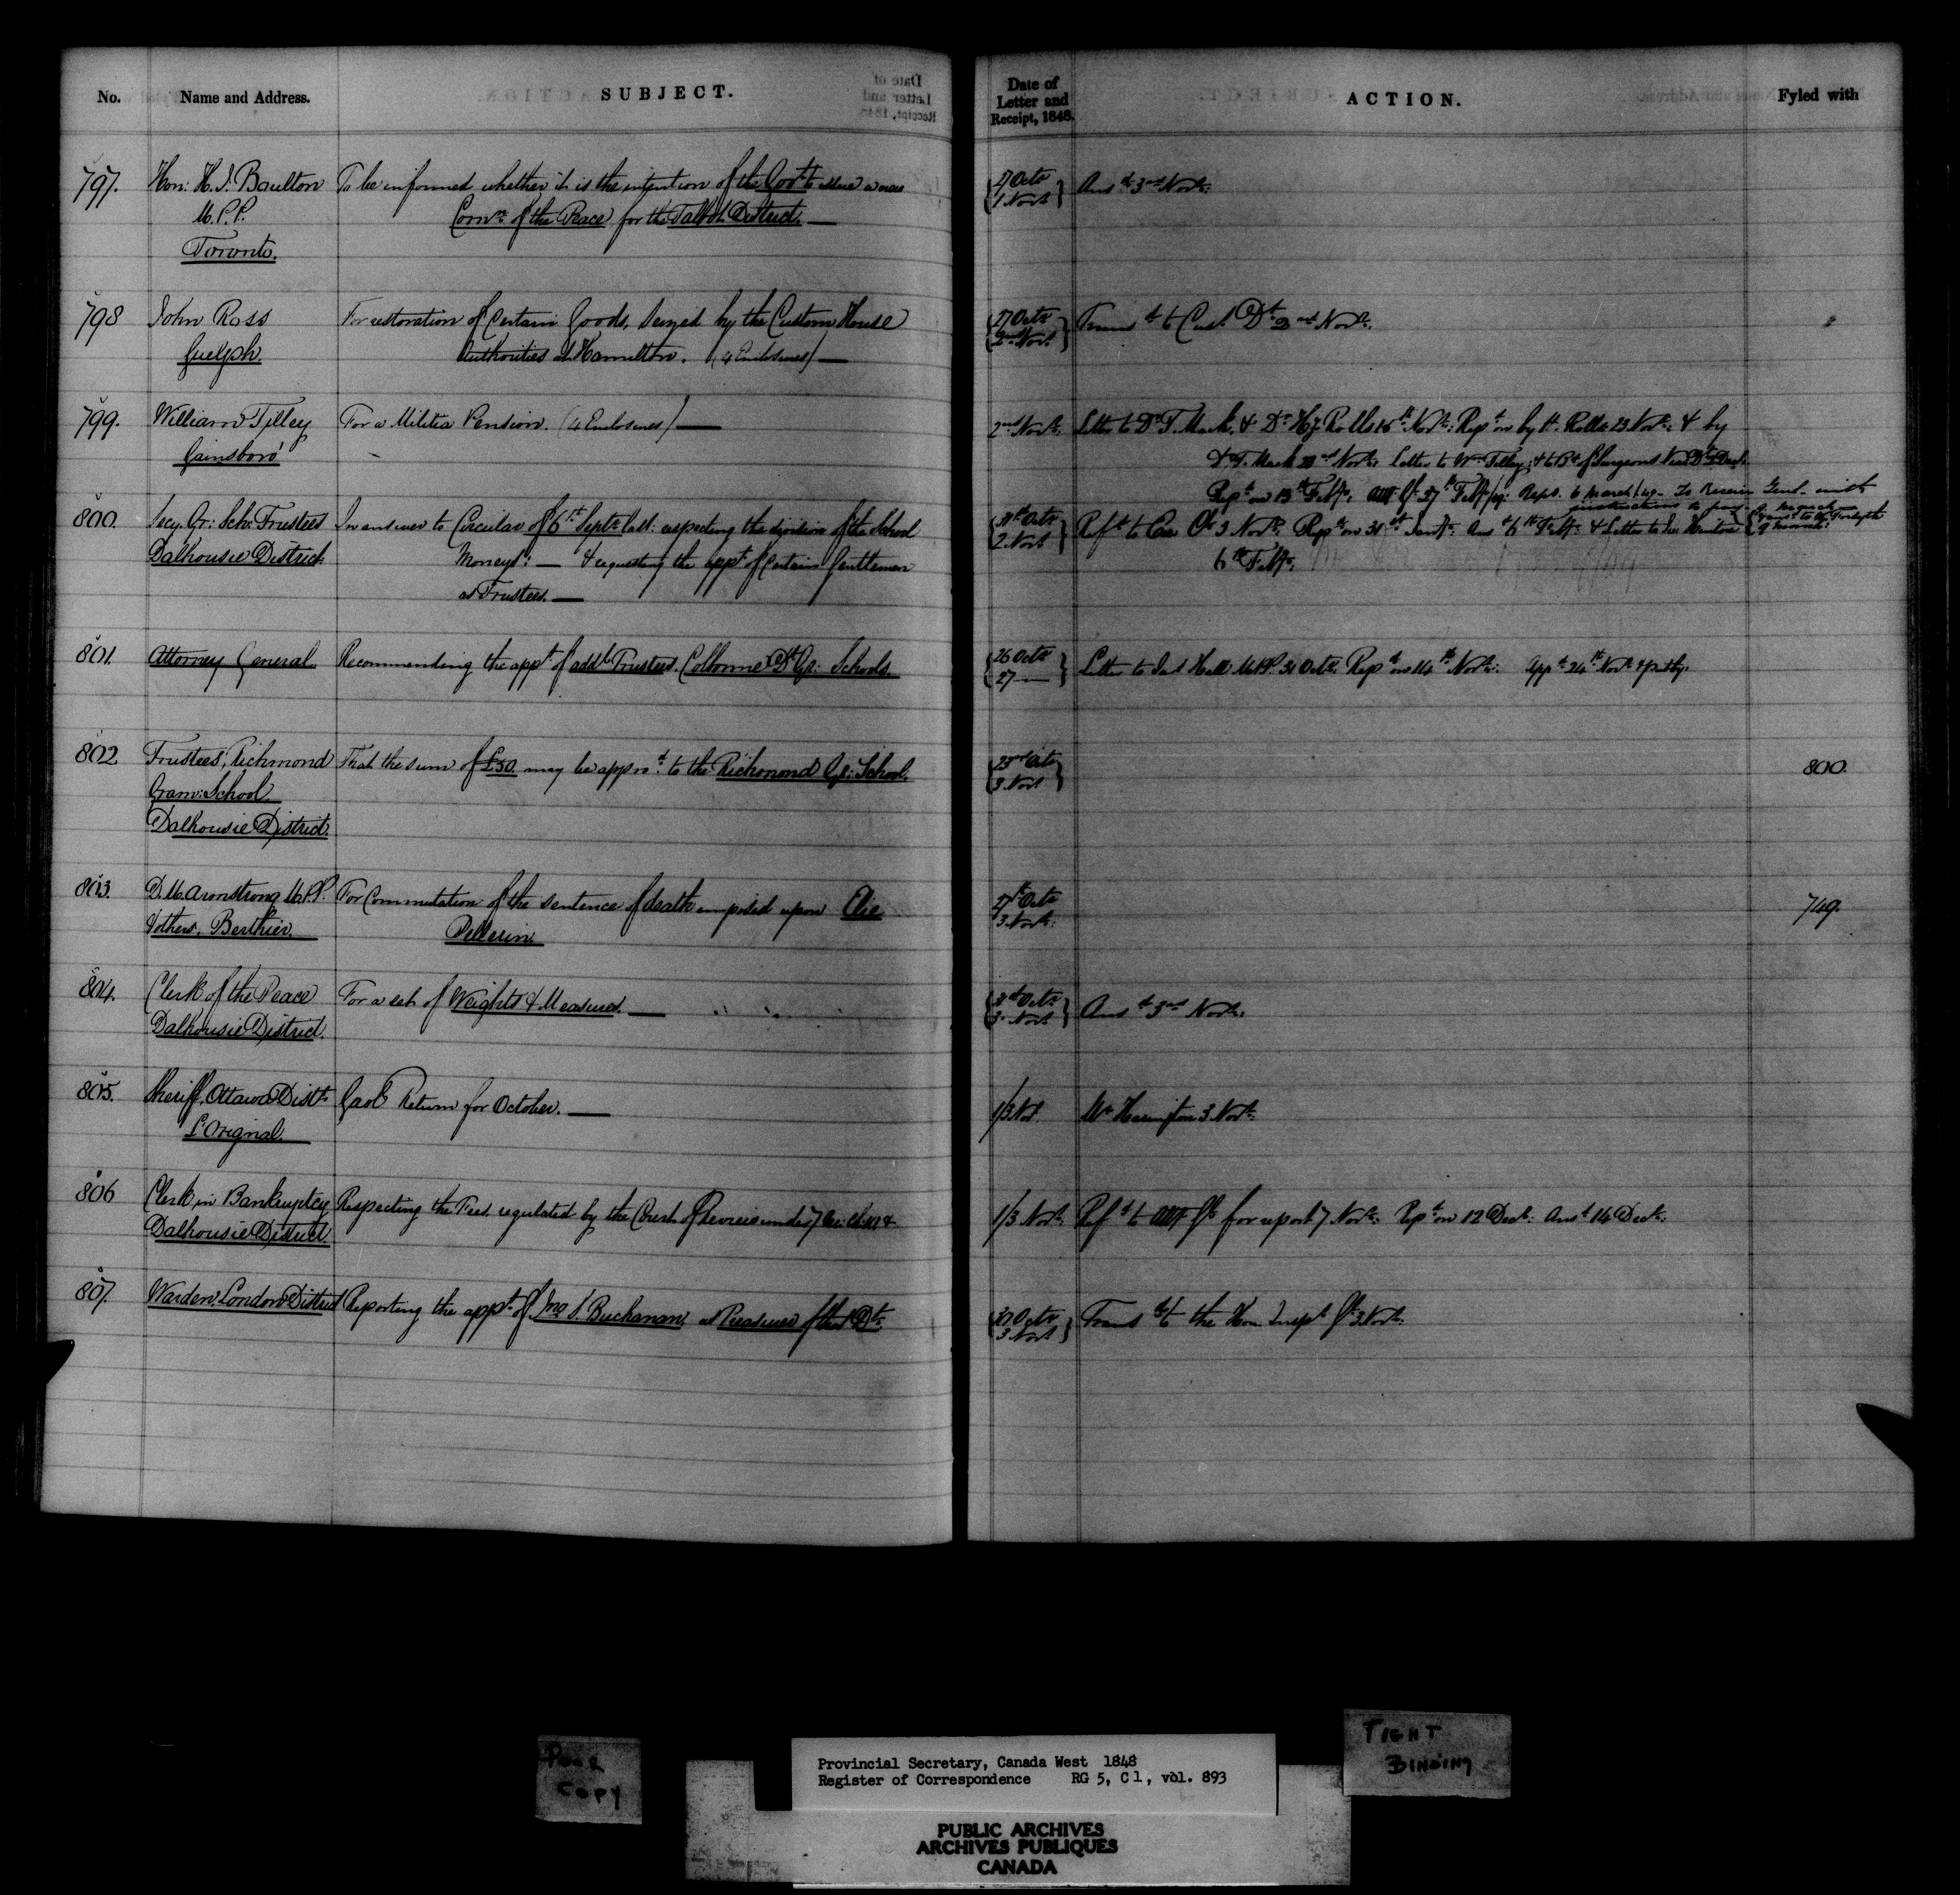 No. Name and Address. SUBJECT.
Date of Letter and Receipt, 1848. ACTION. Fyled with
797. Hon: H. J. Boulton To be informed whether it is the intention of the Govt. to issue a new
M.P.P. Comn. of the Peace for the Talbot District.
Toronto.
27 Octr
1 Novr Ansd. 3rd Novr.
798 John Ross For restoration of certain Goods, seized by the Custom House
Guelph. Authorities at Hamilton. (4 Enclosures)
27 Octr
2nd Novr Transd. to Cust. Dt. 2nd Novr.
799. William Tilley For a Militia Pension. (4 Enclosures)
Gainsboro'
2nd Novr. Letter to Dr. T. Mack & Dr. Hy Rolls 15th Novr: Repd. on by H. Rolls 23 Novr: & by
Dr. T. Mack Novr: Letter to Wm. Tilley; & to Bd. of Surgeons
Repd. on 13th Feby. 27th Feby/49. Repd. 6 March/49 - To Receiver Genl. with
instructions to pay
800. Secy. Gr: Sch: Trustees In answer to Circular of 6th Septr. last: respecting the division of the School
Dalhousie District. Moneys: — & requesting the appt. of certain Gentlemen
as Trustees. —
31st Octr
2 Novr Refd. to Ex 3 Novr. Repd. on 31st Jany. Ansd. 6th Feby. & Letter to
6th Feby.
801. Attorney General Recommending the appt. of addl. Trustees. Colborne Dt. Gr: Schools.
26 Octr
27 — Letter to Jas Hall M.P.P. 31 Octr. Repd. on 14th Novr: Appd. 24th Novr.
802. Trustees, Richmond That the sum of £50. may be appd. to the Richmond Gr: School.
Gram: School.
Dalhousie District.
23rd Octr
3 Novr
800.
803. D. M. Armstrong M.P.P. For Commutation of the sentence of death imposed upon Elie
& others. Berthier. Pellerin.
27th Octr
3 Novr:
749.
804. Clerk of the Peace For a set of Weights & Measures. —
Dalhousie District.
31st Octr
3 Novr Ansd. 3rd Novr.
805. Sheriff, Ottawa Distt. Gaol Return for October. —
L'Orignal.
1/3 Nov. Mr Harington 3 Novr.
806 Clerk in Bankruptcy Respecting the Fees, regulated by the Court of
Dalhousie District.
1/3 Novr. Refd. to for report 7 Novr: Repd. on 12 Decr: Ansd. 14 Decr.
807. Warden, London District Reporting the appt. of Jno. S. Buchanan, as Treasurer of that Dt.
30 Octr
3 Novr Transd. to the Hon. Inspr. 3 Novr.
POOR
COPY
Provincial Secretary, Canada West 1848
Register of Correspondence RG 5, C 1, vol. 893
TIGHT
BINDING
PUBLIC ARCHIVES
ARCHIVES PUBLIQUES
CANADA